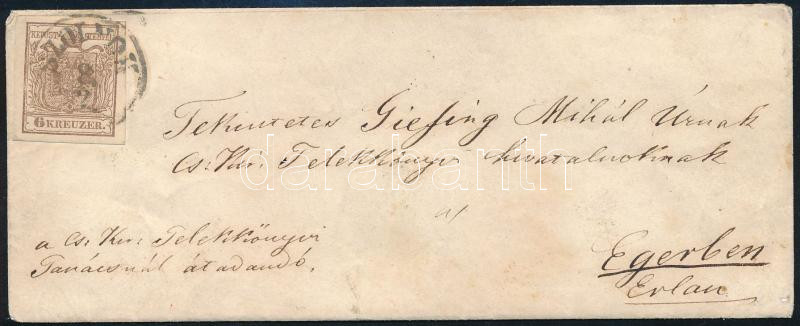 SZOLNOK
KKPOST-STEMPEL
6 KREUZER.
Tekintetes Giesing Mihál Úrnak
Cs: Kir: Telekkönyvi hivatalnoknak
a Cs: Kir: Telekkönyvi
Tanácsnál átadandó.
Egerben
Erlau
darabanth